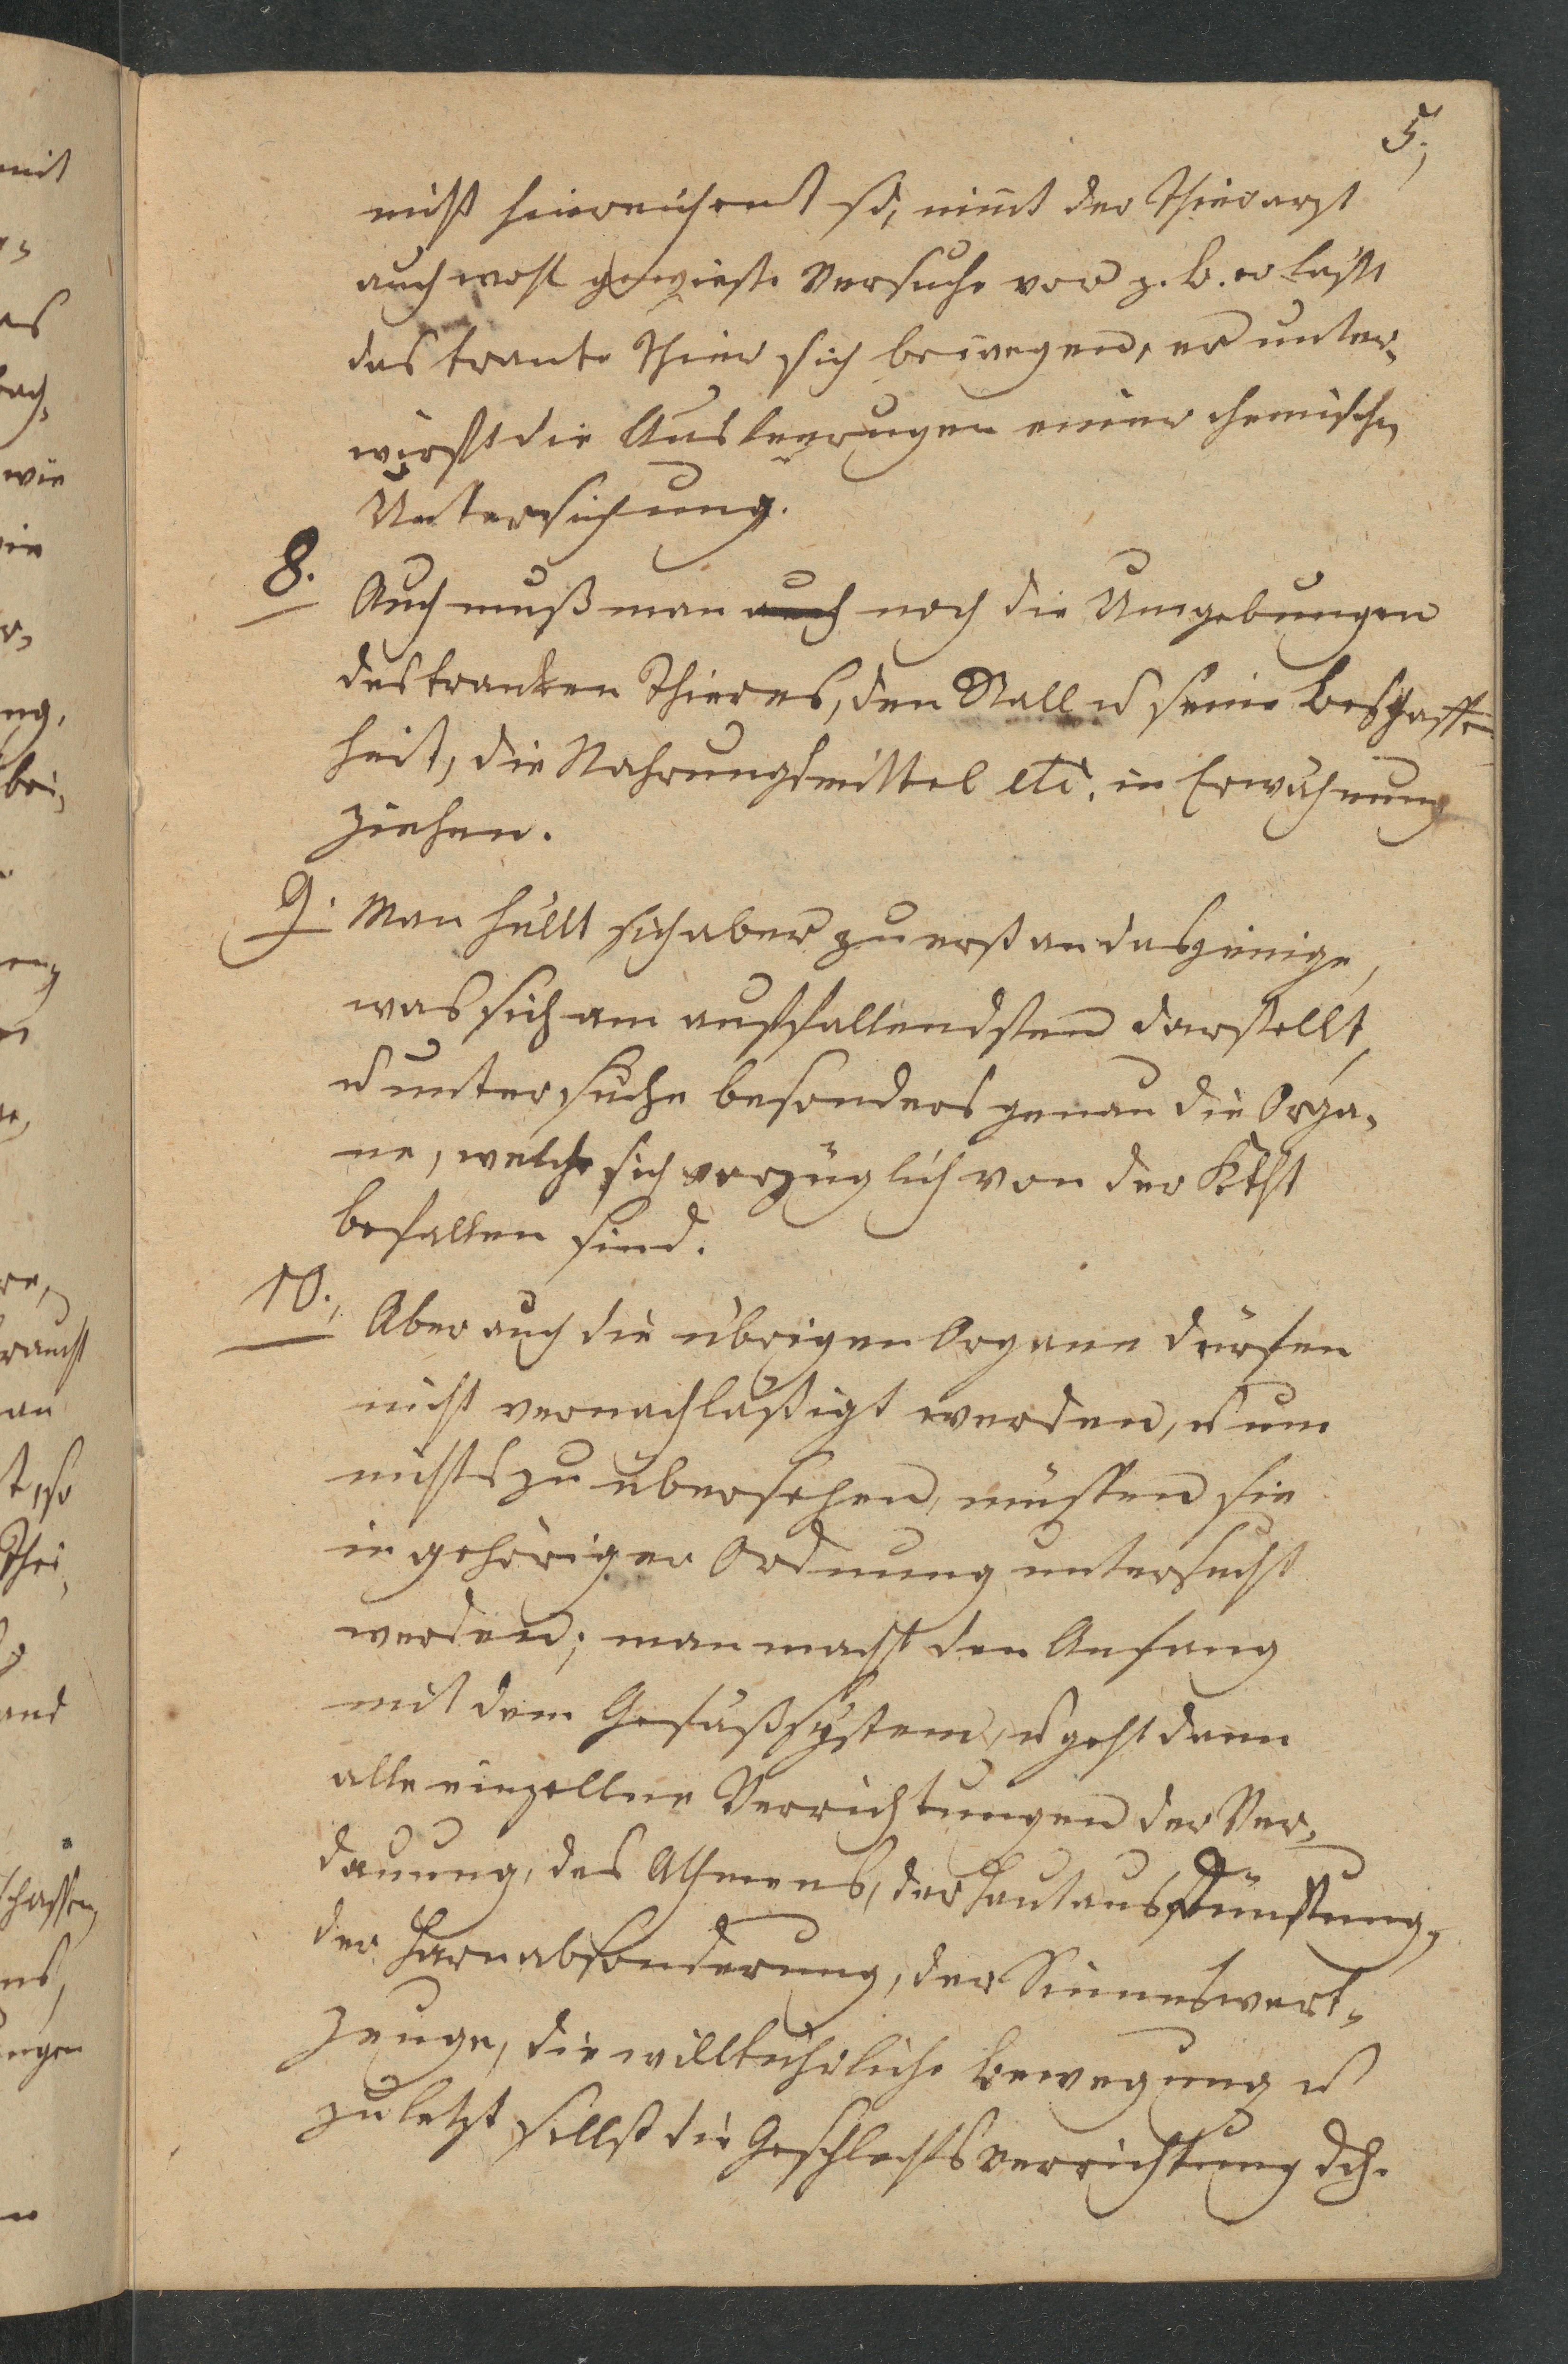 5.,
nicht hinreichent sd, nimt der Thierarzt
auch wohl gewieße Versuche vor z. b. er läßt
das kranke Thier sich bewegen, er unter„
wirft die Ausleerugen einer chemische
Untersuchung.
8.
Auch muß man auch noch die Umgebungen
des kranken Thieres, den Stall u seine Beschaffen
heit, die Nahrungsmittel etc. in Erwähnung
ziehen.
9. Man hällt sich aber zuerst an daszenige,
was sich am auffallendsten darstellt,
u untersuche besonders genau die Orga„
ne, welche sich vorzüglich von der Kkht
befallen sind.
10., Aber auch die übrigen Organe dürfen
nicht vernachläßigt werden, u um
nichts zu übersehen, müßen sie
in gehöriger Ordnung untersucht
werden; man macht den Anfang
mit dem Gefäßsystem, u geht dann
alle einzellne Verrichtungen der Ver„
dauung, des Athmens, der Hautausdünstung,
der Harnabsonderung, der Sinneswerk„
zeuge, die willkührliche Bewegung u
zuletzt selbst die Geschlechtsverrichtung dch.
mit
es
wie
ng,
bei,
raucht
an
t, so
Thei„
and
schaffen
ns,
ungen